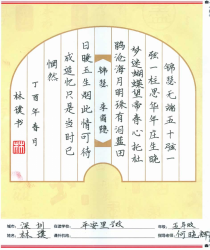 锦瑟无端五十弦一
弦一柱思华年庄生晓
梦迷蝴蝶望帝春心托杜
鹃沧海月明珠有泪蓝田
锦瑟 李商隐
日暖玉生烟此情可待
成追忆只是当时已
惘然
丁酉年春月
林璞书
城市：深圳 在读学校：平安里学校 年级：五年级
姓名：林璞 指导老师：何晓辉